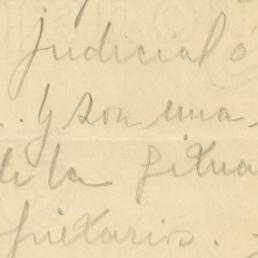 judicial o
y son una
de la situa
pietarios.